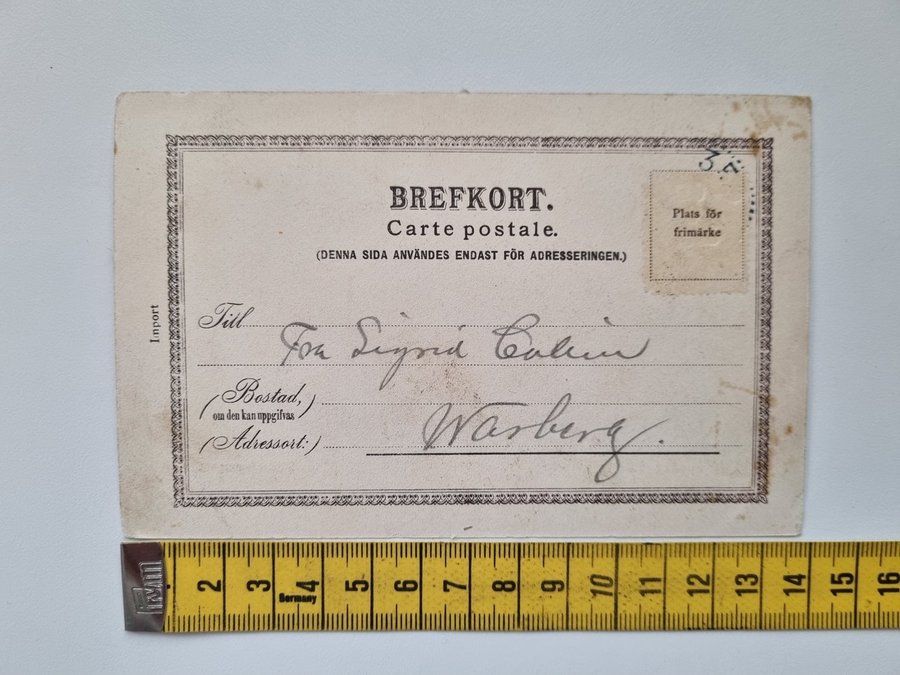 BREFKORT.
Carte postale.
(DENNA SIDA ANVÄNDES ENDAST FÖR ADRESSERINGEN.)
Plats för
frimärke
Import
Till
Fru Sigrid
(Bostad,
om den kan uppgifvas)
Warberg.
(Adressort:)
2 3 4 5 6 7 8 9 10 11 12 13 14 15 16
Germany